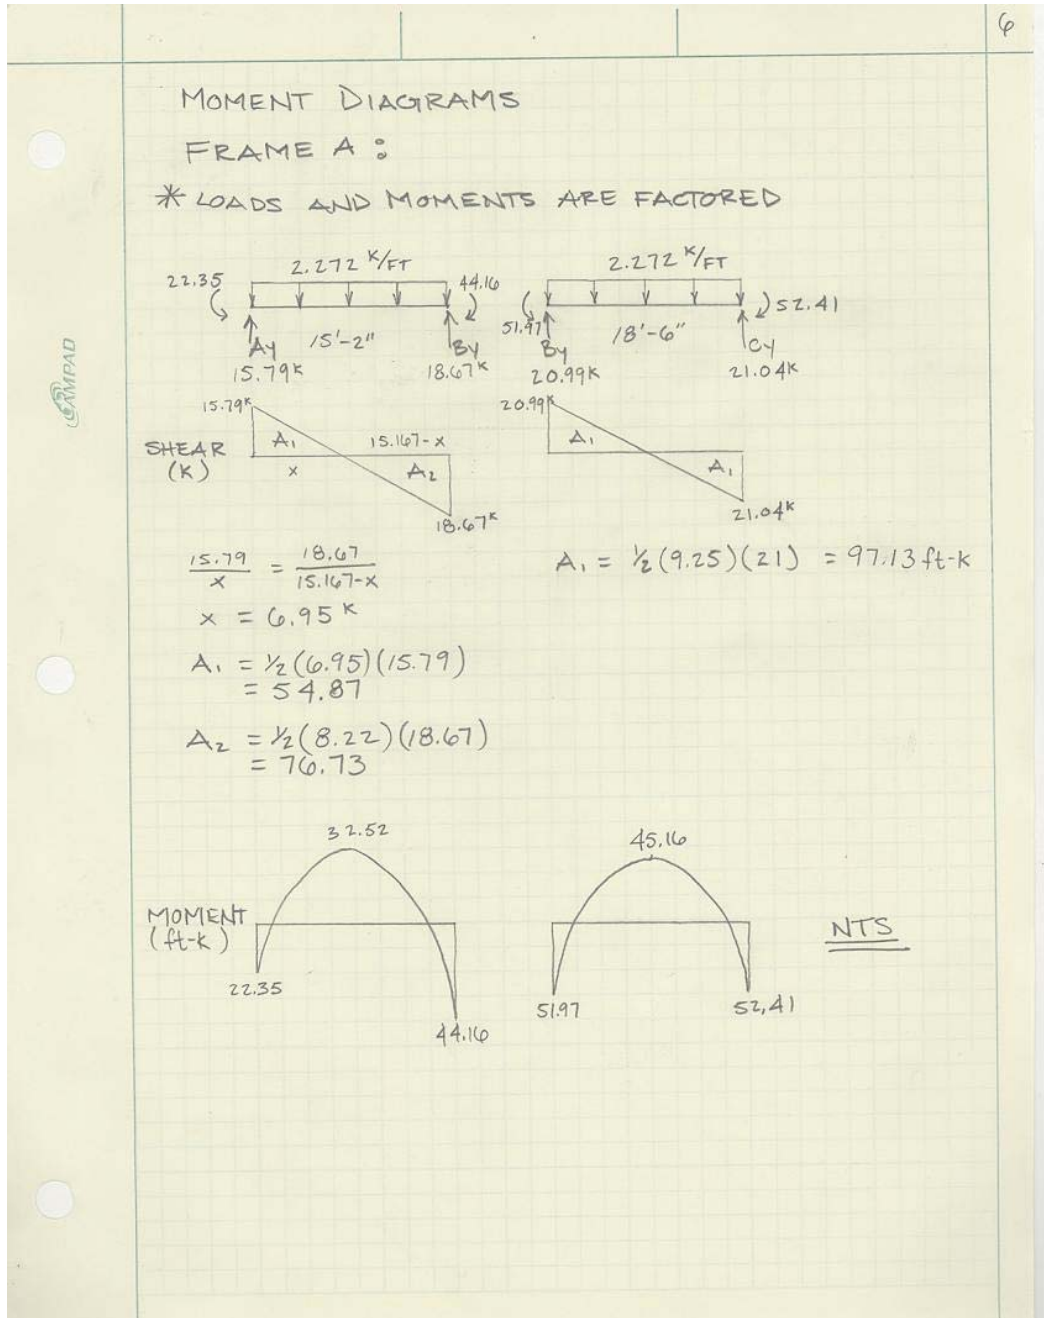 6
MOMENT DIAGRAMS
FRAME A :
* LOADS AND MOMENTS ARE FACTORED
22.35 2.272 K/FT 44.16
Ay 15'-2" By
15.79K 18.67K
2.272 K/FT
51.97 52.41
By 18'-6" Cy
20.99K 21.04K
CAMPAD
SHEAR
(K)
15.79K
A1 15.167-x
x A2
18.67K
20.99K
A1
A1
21.04K
15.79/x = 18.67/15.167-x
x = 6.95 K
A1 = 1/2(6.95)(15.79)
= 54.87
A2 = 1/2(8.22)(18.67)
= 76.73
A1 = 1/2(9.25)(21) = 97.13 ft-k
MOMENT
(ft-k)
32.52
22.35
44.16
45.16
51.97
52,41
NTS